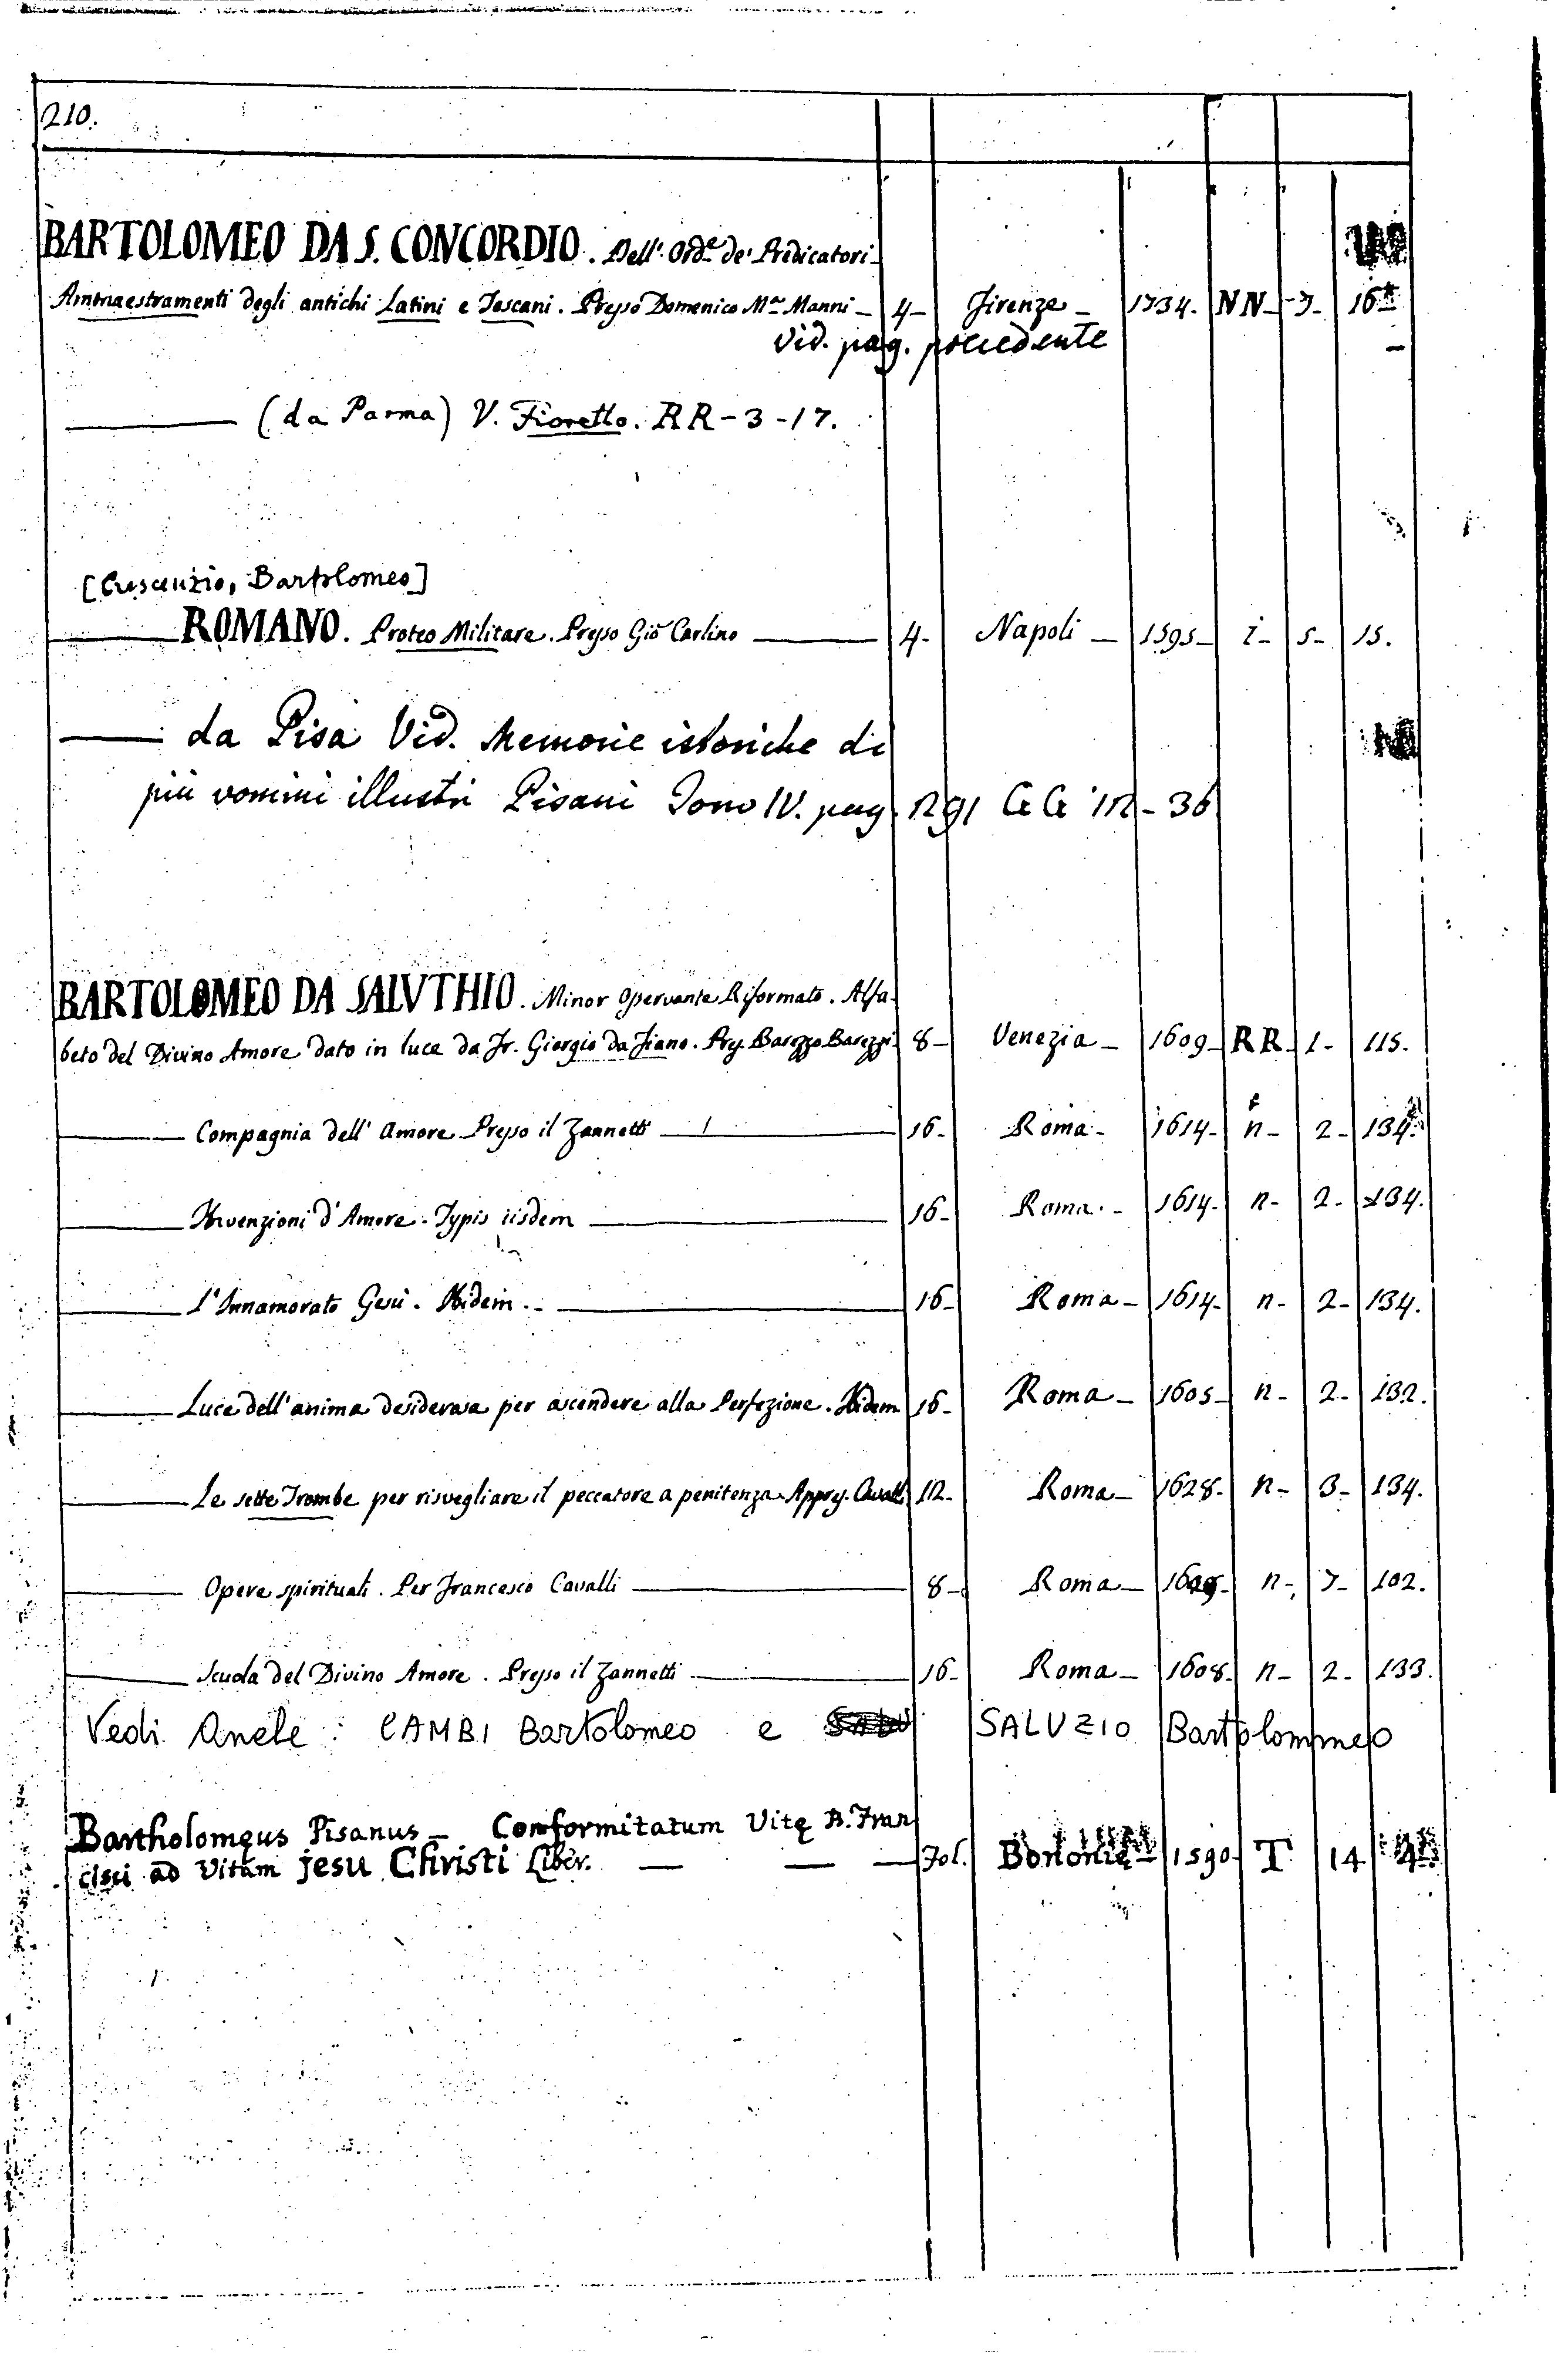 210.
BARTOLOMEO DA S. CONCORDIO. Dell' Ord.e de' Predicatori-
Ammaestramenti degli antichi Latini e Toscani. Presso Domenico M.a Manni - 4- Firenze - 1734. NN- 7- 16
Vid. pag. precedente
(da Parma) V. Fioretto. RR-3-17.
[Crescenzio, Bartolomeo]
ROMANO. Proteo Militare. Presso Gio Carlino 4- Napoli - 1595- i- 5- 15.
da Pisa Vid. Memorie istoriche di
più uomini illustri Pisani Tomo IV. pag. 291 CC 12-36
BARTOLOMEO DA SALVTHIO. Minor Osservante Riformato. Alfa-
beto del Divino Amore dato in luce da Fr. Giorgio da Fiano. Press. Barezzo Barezzi 8- Venezia - 1609- RR- 1- 115.
Compagnia dell' Amore. Presso il Zannetti 16- Roma- 1614- n- 2- 134.
Invenzioni d'Amore. Typis iisdem 16- Roma.- 1614- n- 2- 134.
L'Innamorato Gesù. Ibidem.- 16- Roma- 1614- n- 2- 134.
Luce dell'anima desiderosa per ascendere alla Perfezione. Ibidem 16- Roma- 1605- n- 2- 132.
Le sette Trombe per risvegliare il peccatore a penitenza. Appress. Cavalli 12- Roma- 1628- n- 3- 134.
Opere spirituali. Per Francesco Cavalli 8- Roma- n- 7- 102.
Scuola del Divino Amore. Presso il Zannetti 16- Roma- 1608- n- 2- 133.
Vedi Anche: CAMBI Bartolomeo e SALUZIO Bartolommeo
Bartholomęus Pisanus - Conformitatum Vitę B. Fran
cisci ad Vitam Jesu Christi Liber. Fol. Bononię- 1590- T 14 4